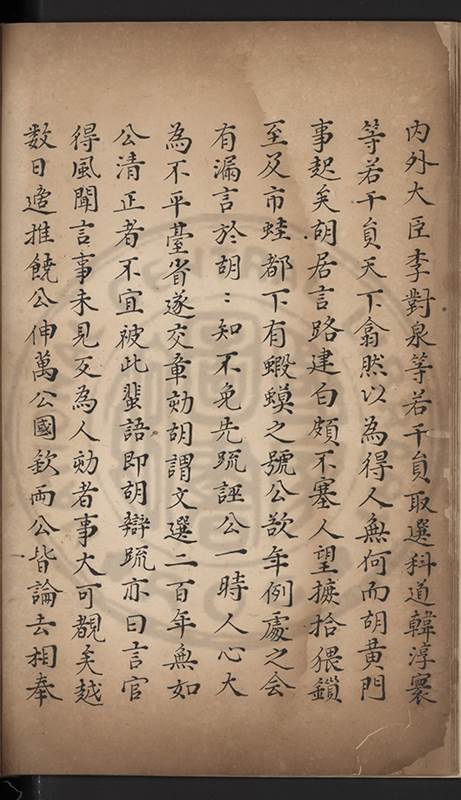 内外大臣李對泉等若干員取選科道韓淳寰
等若干員天下翕然以為得人無何而胡黃門
事起矣胡居言路建白頗不塞人望摭拾猥鎖
至及市蛙都下有蝦蟆之號公欲年例處之会
有漏言於胡〻知不免先疏誣公一時人心大
為不平臺省遂交章劾胡謂文選二百年無如
公清正者不宜被此蜚語即胡辯疏亦曰言官
得風聞言事未見反為人劾者事大可覩矣越
数日遼推饒公伸萬公國欽而公皆論去相奉